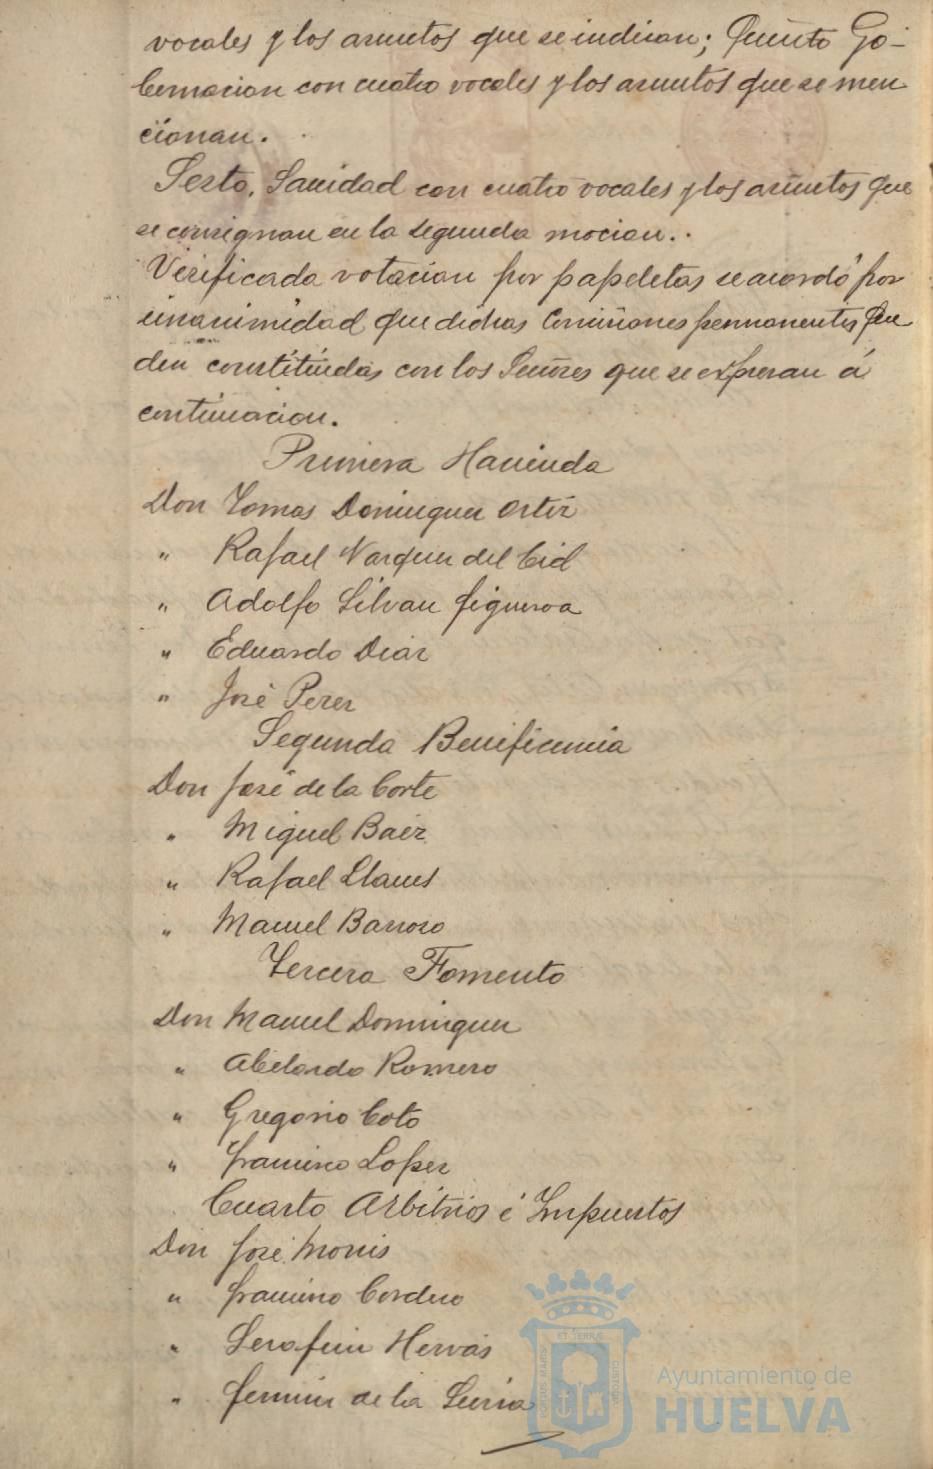 vocales y los asuntos que se indican; Quinto Go-
bernacion con cuatro vocales y los asuntos que se men
cionan.
Sexto, Sanidad con cuatro vocales y los asuntos que
se consignan en la segunda mocion.
Verificada votacion por papeletas se acordó por
unanimidad que dichas Comisiones permanentes que
den constituidas con los Señores que se expresan á
continuacion.
Primera Hacienda
Don Tomas Dominguez Ortiz
" Rafael Narquez del Cid
" Adolfo Silvan Figueroa
" Eduardo Diaz
" José Perez
Segunda Beneficencia
Don José de la Corte
" Miguel Baez
" Rafael Llanes
" Manuel Barroso
Tercera Fomento
Don Manuel Dominguez
" Abelardo Romero
" Gregorio Coto
" Francisco Lopez
Cuarto Arbitrios é Impuestos
Don José Monis
" Francisco Cordero
" Serafin Hervás
" Fermin de la Sierra
Ayuntamiento de
HUELVA